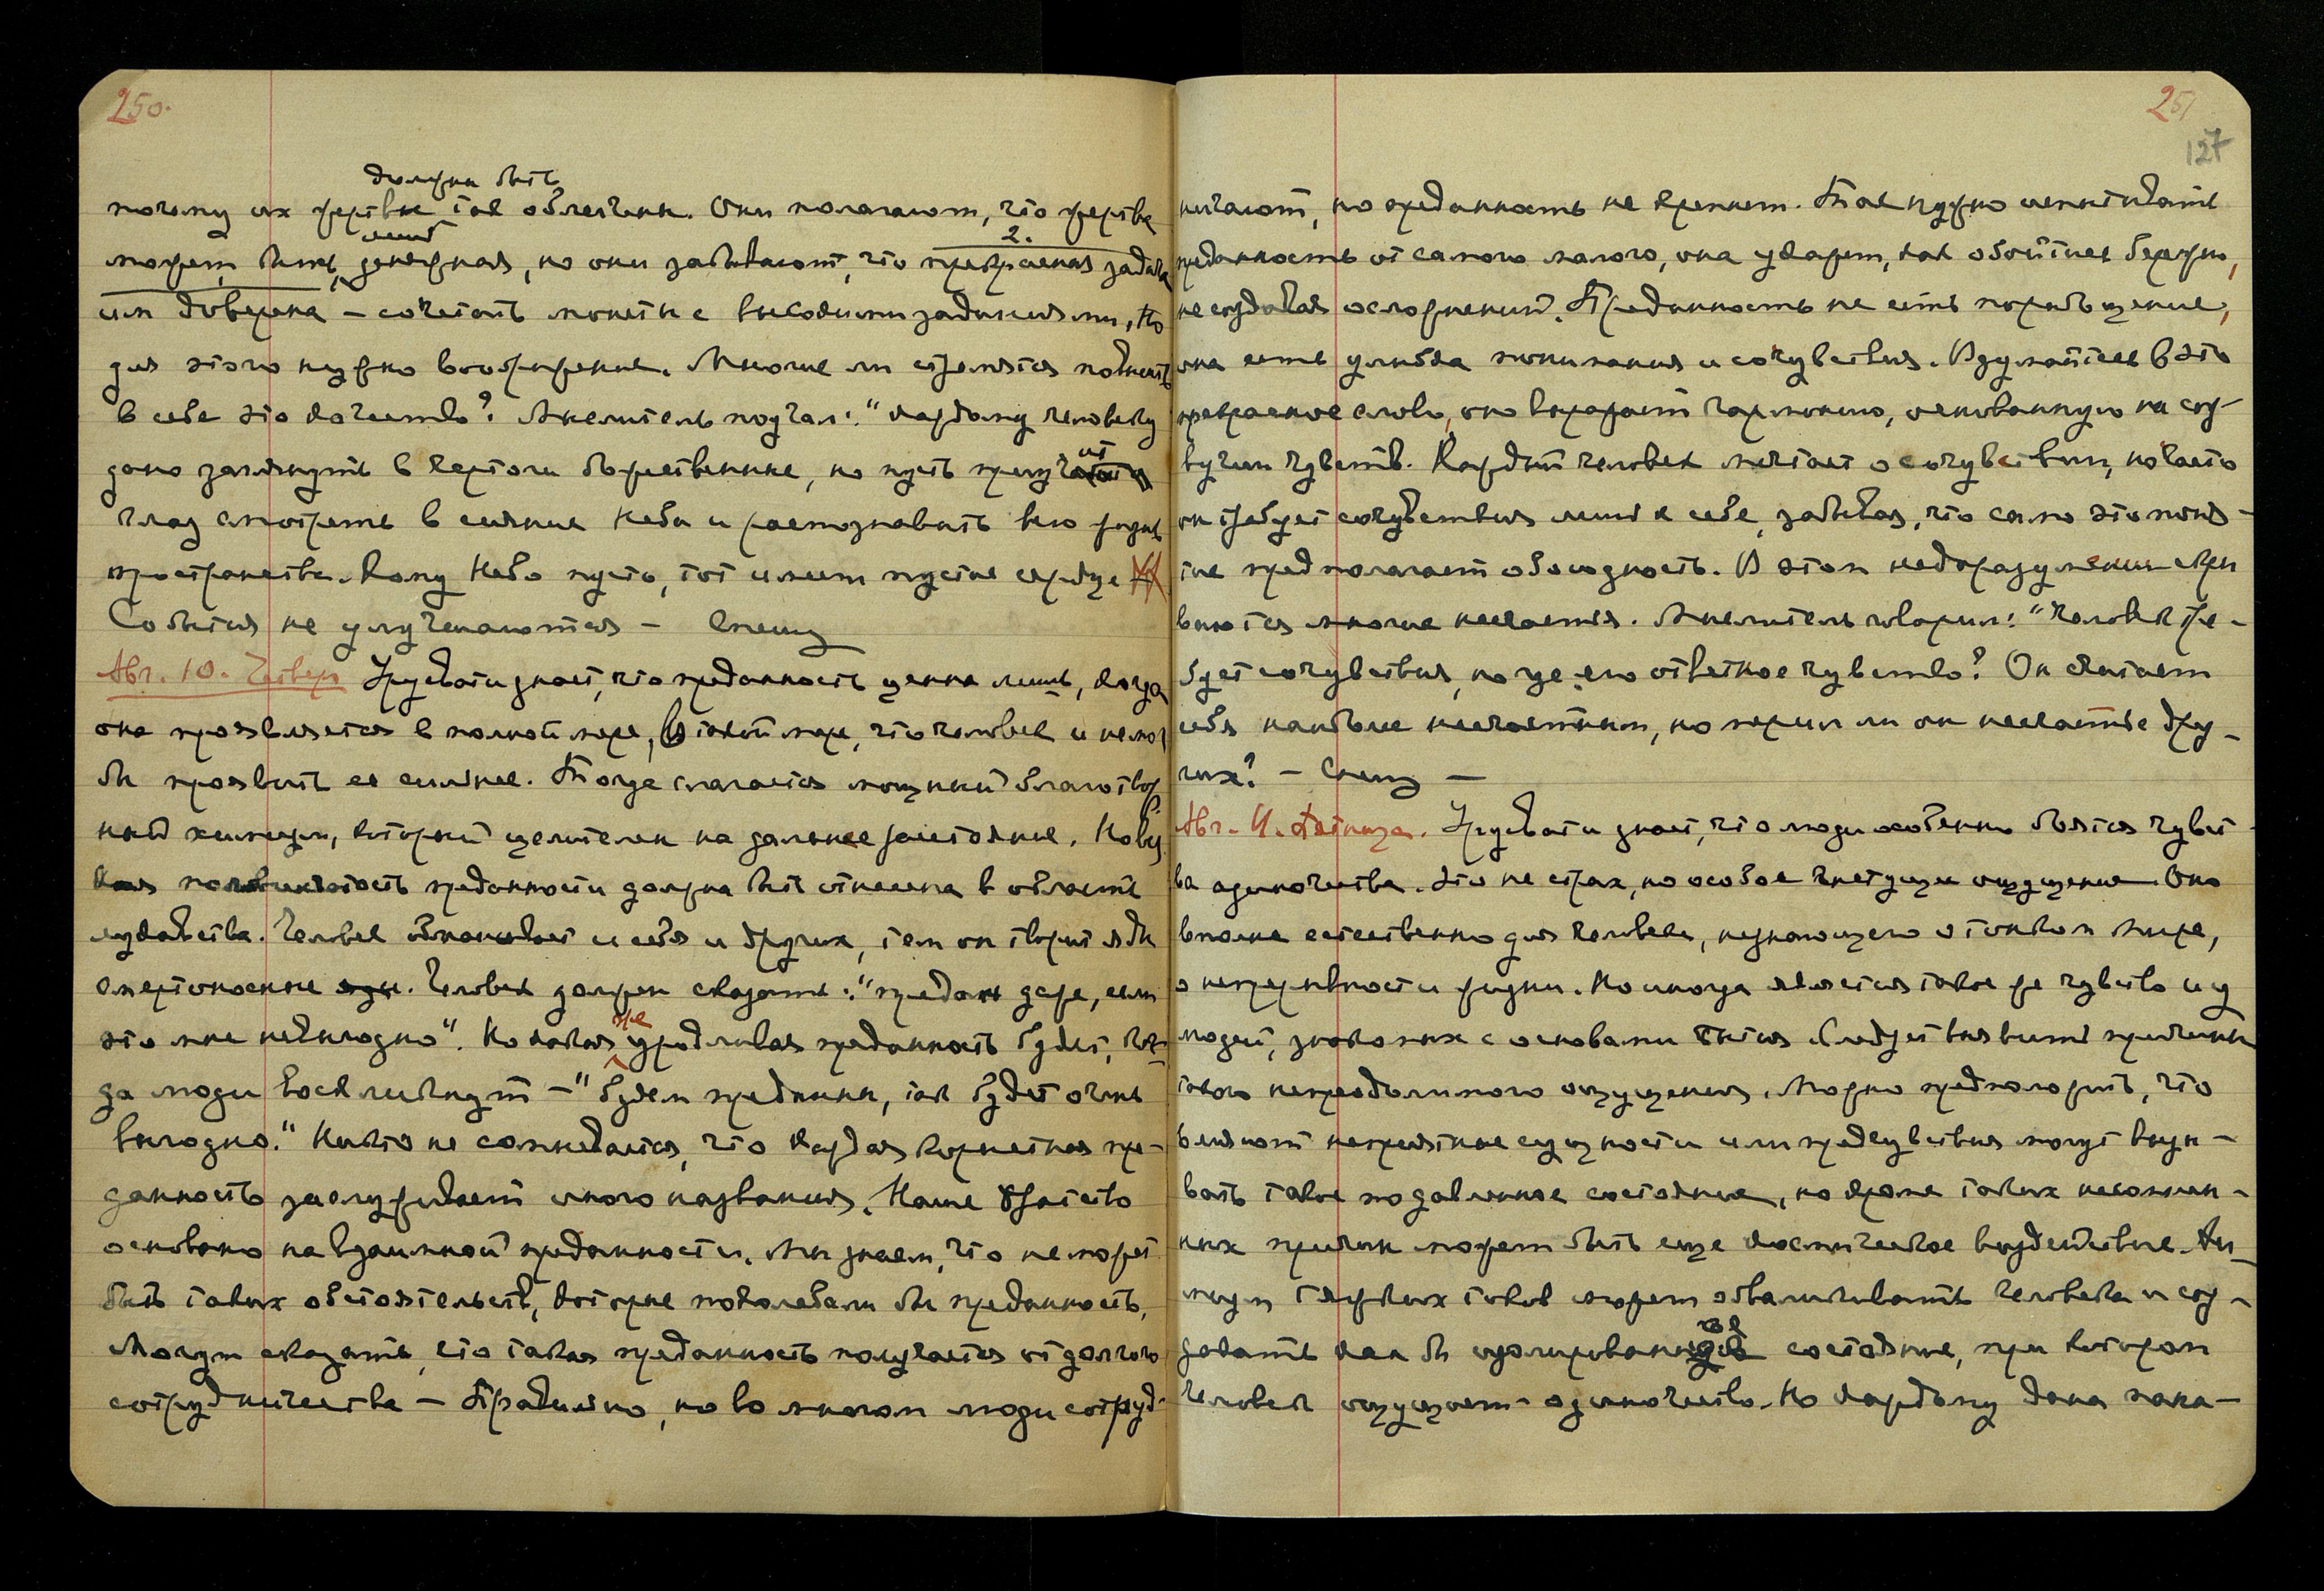 250.
должны быть
почему их жертвы так облегчены. Они полагают, что жертва
лишь 2.
может быть денежная, но они забывают, что прекрасная задача
им доверена – сочетать монеты с высокими заданиями, но
для этого нужно воображение. Многие ли стремятся положить
в себе это качество? Мыслитель поучал: "каждому человеку
дано заглянуть в чертоги божественные, но пусть приучит
глаз смотреть в сияние Неба и распознавать всю жизнь
пространства. Кому Небо пусто, тот имеет пустое сердце
События не улучшаются – спешу
Авг. 10. Четверг Урусвати знает, что преданность ценна лишь, когда
она проявляется в полной мере, в такой мере, что человек и не мог
бы проявить ее сильнее. Тогда слагается мощный благотвор
ный химизм, который целителен на дальнее расстояние. Но вся
кая половинчатость преданности должна быть отнесена в область
лукавства. Человек обманывает и себя и других, тем он творит яды
смертоносные. Человек должен сказать: "предан даже, если
это мне невыгодно". Но какая же уродливая преданность будет, ког-
да люди воскликнут – "будем преданны, так будет очень
выгодно." Никто не сомневается, что каждая корыстная пре-
данность заслуживает иного названия. Наше Братство
основано на взаимной преданности. Мы знаем, что не может
быть таких обстоятельств, которые поколебали бы преданность.
Могут сказать, что такая преданность получается от долгого
сотрудничества – Правильно, но во многом люди сотруд-
251
127
ничают, но преданность не крепнет. Так нужно испытывать
преданность от самого малого, она укажет, как обойтись бережно,
не создавая осложнений. Преданность не есть порабощение,
она есть улыбка понимания и сочувствия. Вдумайтесь в это
прекрасное слово, оно выражает гармонию, основанную на соз-
вучии чувств. Каждый человек мечтает о сочувствии, но часто
он требует сочувствия лишь к себе, забывая, что само это поня-
тие предполагает обоюдность. В этом недоразумении скры
ваются многие несчастья. Мыслитель говорил: "Человек тре-
бует сочувствия, но где его ответное чувство? Он считает
себя наиболее несчастным, но мерил ли он несчастье дру-
гих? – Спешу –
Авг. 11. Пятница. Урусвати знает, что люди особенно боятся чувст
ва одиночества. Это не страх, но особое гнетущее ощущение. Оно
вполне естественно для человека, незнающего о тонком мире,
о непрерывности жизни. Но иногда является такое же чувство и у
людей, знакомых с основами бытия. Следует выяснить причины
такого непреодолимого ощущения. Можно предположить, что
влияют неприятные сущности или предчувствия могут внуш-
вать такое подавленное состояние, но кроме таких несомнен-
ных причин может быть еще космическое воздействие. Хи-
мизм тяжких токов может обволакивать человека и соз-
давать как бы изолированное состояние, при котором
человек ощущает одиночество. Но каждому дана пана-